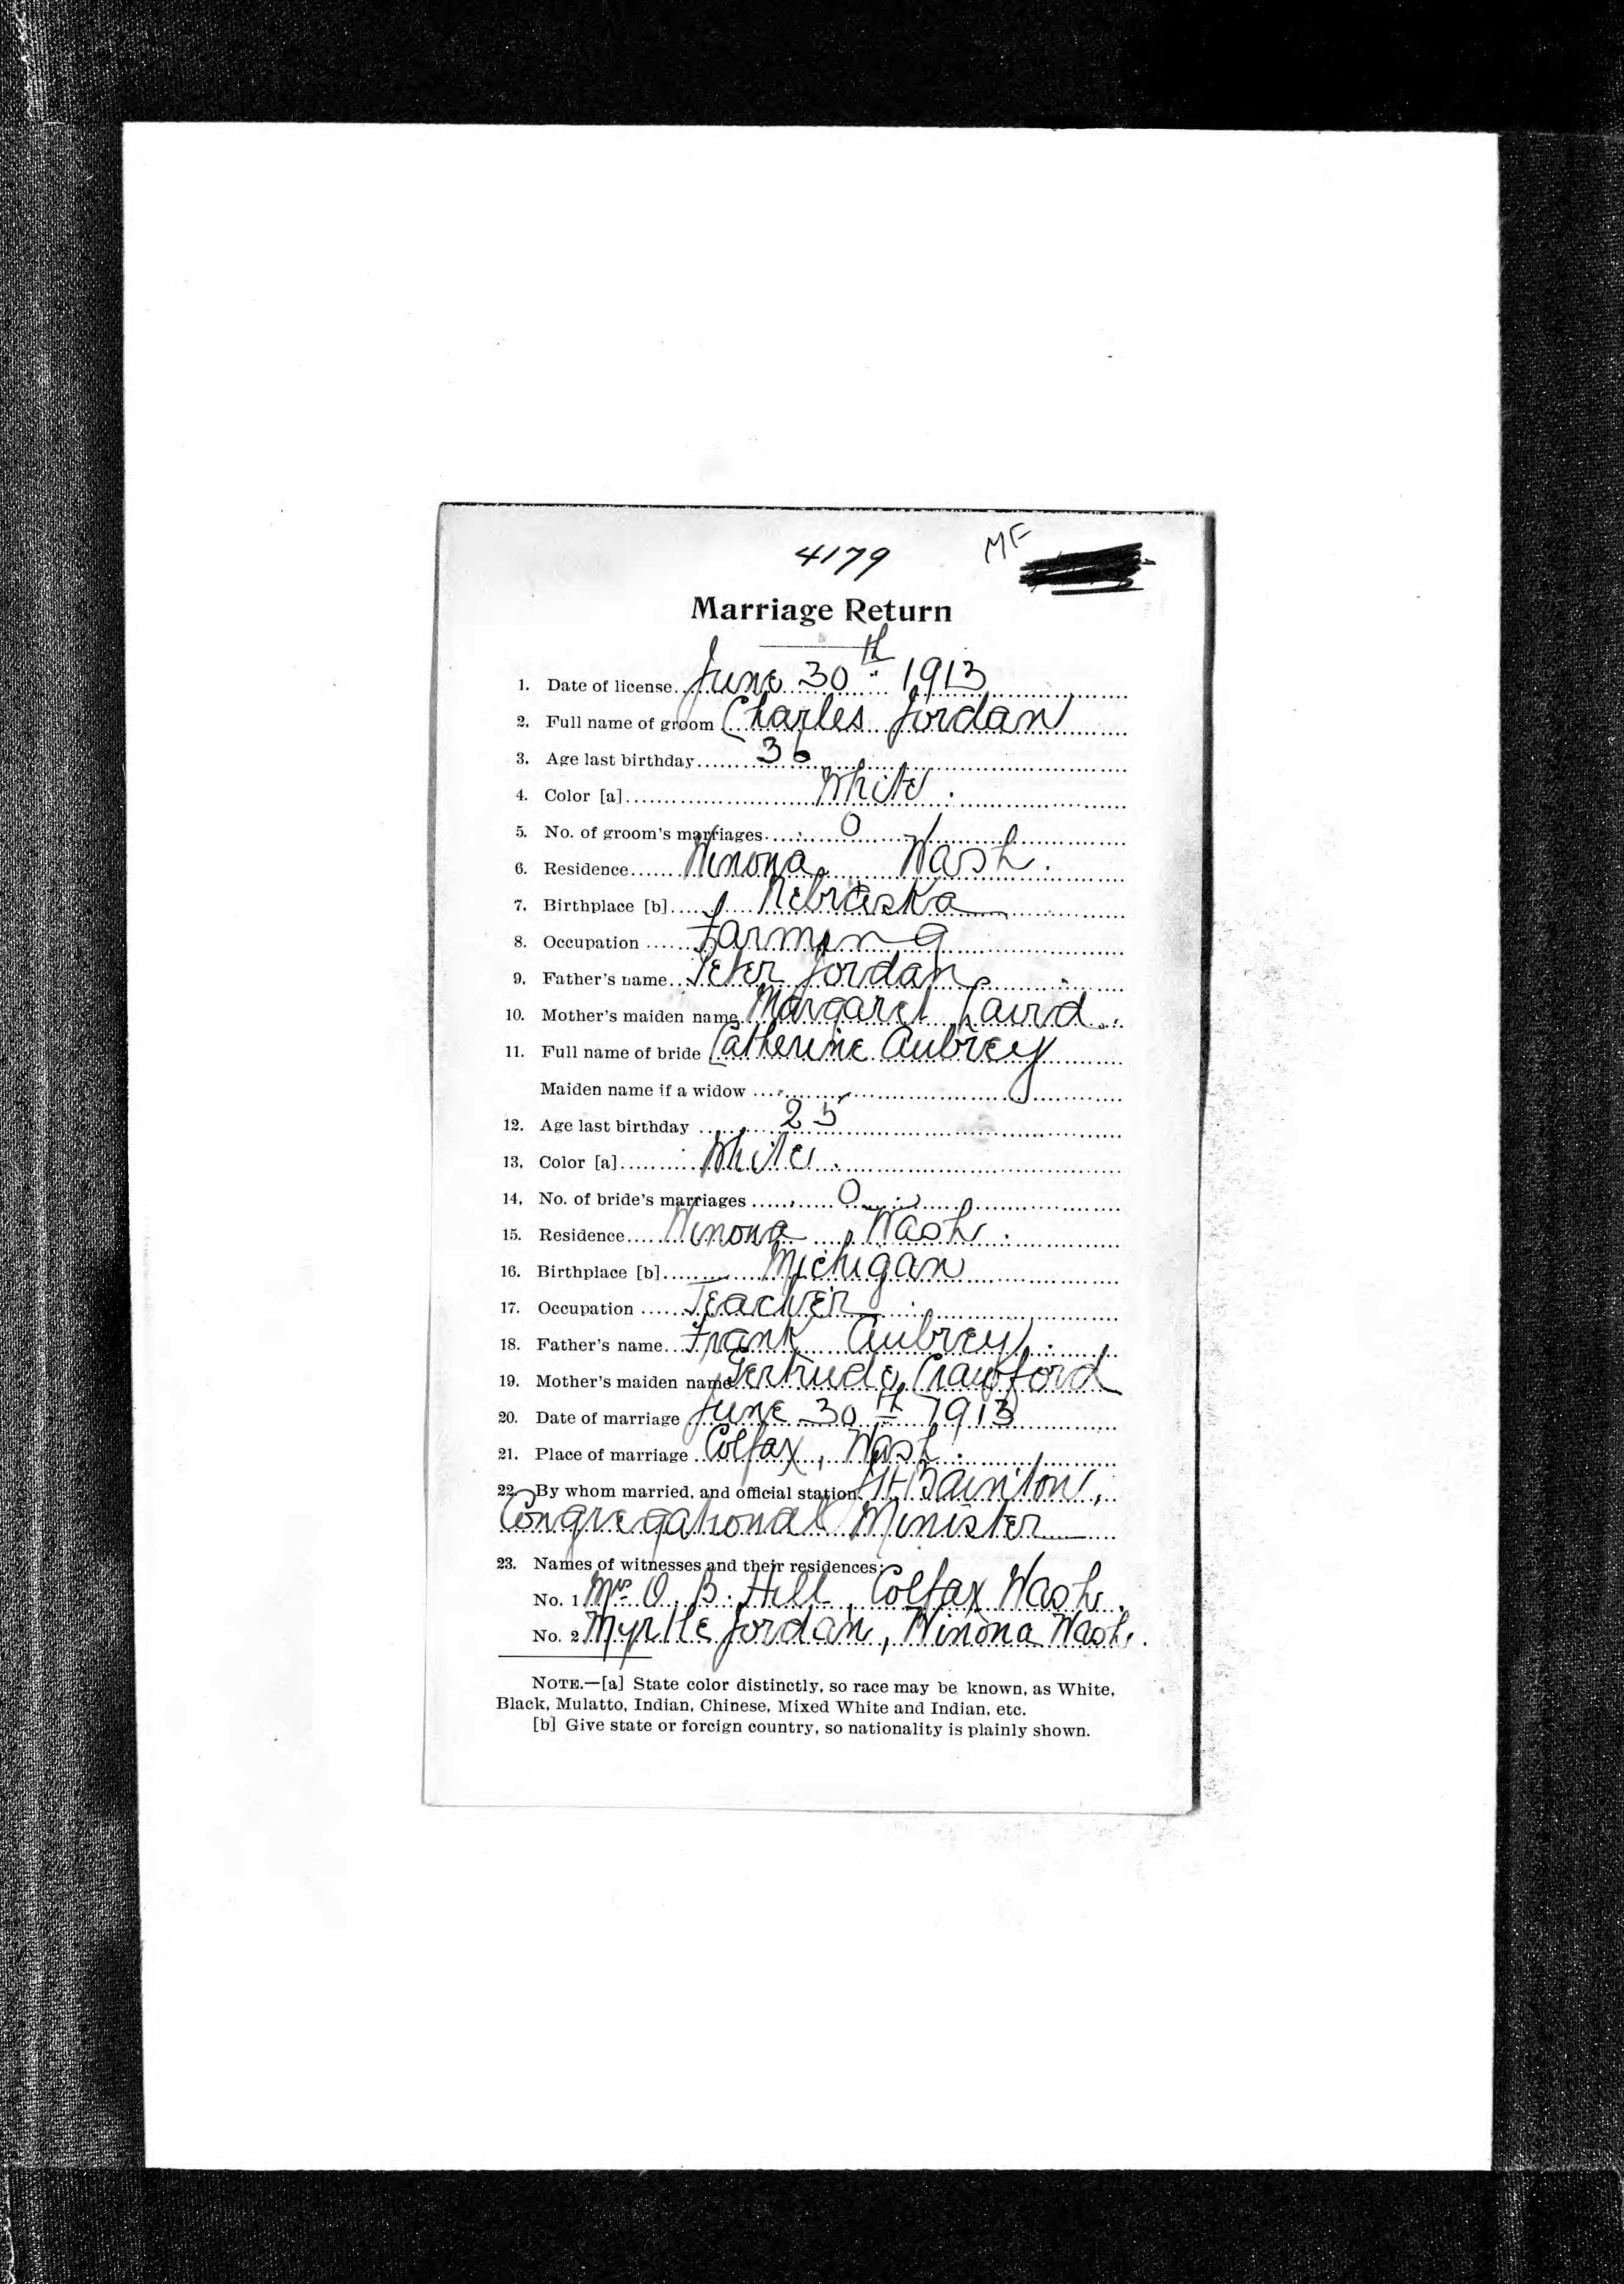 4179
MF
Marriage Return
1. Date of license June 30th 1913
2. Full name of groom Charles Jordan
3. Age last birthday 36
4. Color [a] White.
5. No. of groom's marriages 0
6. Residence Winona, Wash.
7. Birthplace [b] Nebraska
8. Occupation Farming
9. Father's name Peter Jordan
10. Mother's maiden name Margaret Laird
11. Full name of bride Catherine Aubrey
Maiden name if a widow
12. Age last birthday 25
13. Color [a] White.
14. No. of bride's marriages 0
15. Residence Winona, Wash.
16. Birthplace [b] Michigan
17. Occupation Teacher
18. Father's name Frank Aubrey
19. Mother's maiden name Gertrude Crawford
20. Date of marriage June 30th 1913
21. Place of marriage Colfax, Wash.
22. By whom married, and official station, Bainton,
Congregational Minister
23. Names of witnesses and their residences:
No. 1 Mrs. O. B. Hill, Colfax Wash.
No. 2 Myrtle Jordan, Winona Wash.
NOTE.—[a] State color distinctly, so race may be known, as White,
Black, Mulatto, Indian, Chinese, Mixed White and Indian, etc.
[b] Give state or foreign country, so nationality is plainly shown.